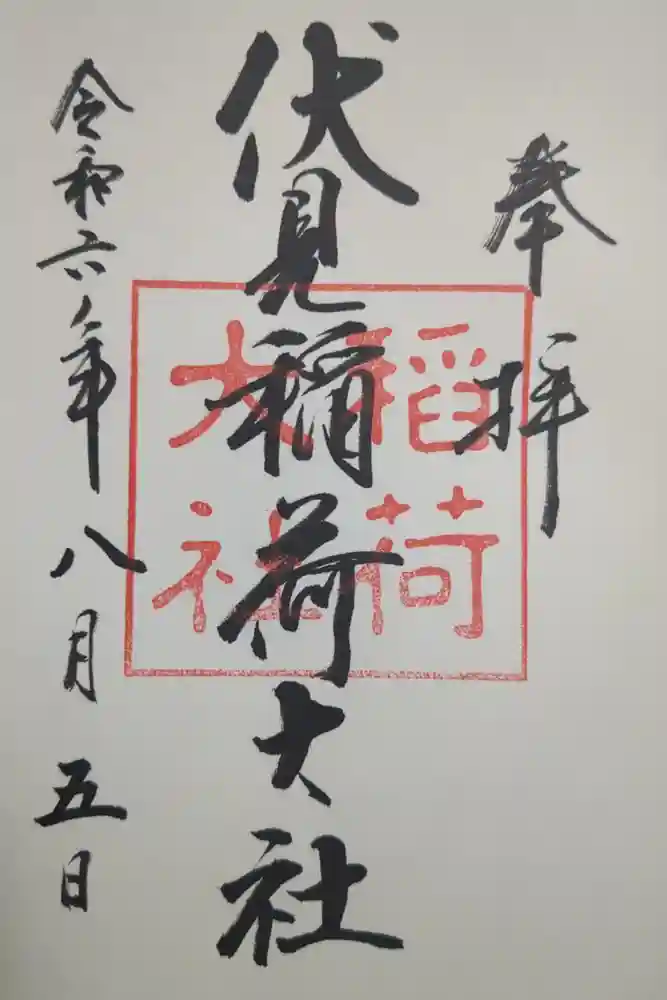 奉拝
伏見稲荷大社
稲荷
大社
令和六年八月五日